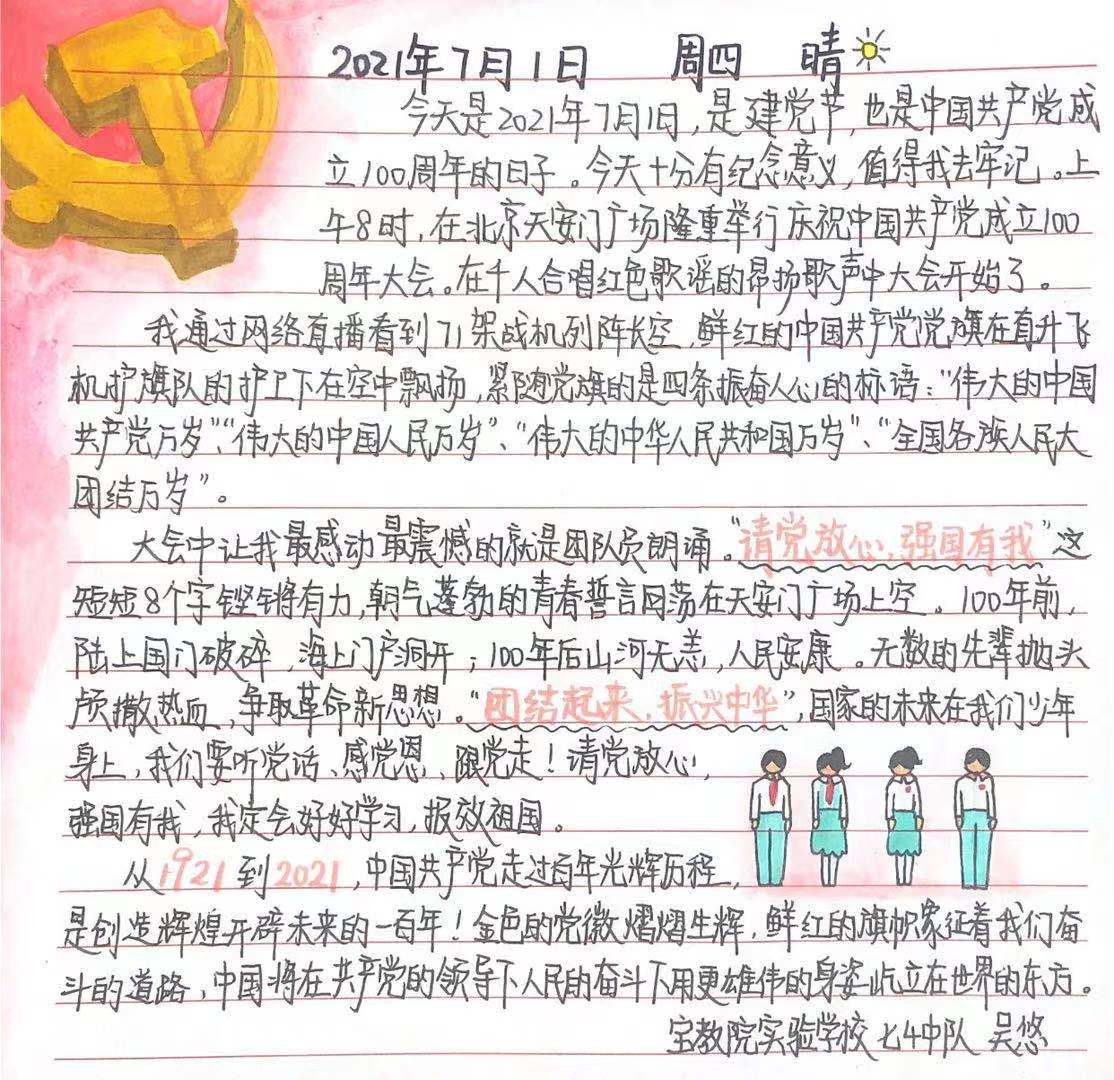 2021年7月1日 周四 晴
今天是2021年7月1日,是建党节,也是中国共产党成
立100周年的日子。今天十分有纪念意义,值得我去牢记。上
午8时,在北京天安门广场隆重举行庆祝中国共产党成立100
周年大会。在千人合唱红色歌谣的昂扬歌声中大会开始了。
我通过网络直播看到71架战机列阵长空,鲜红的中国共产党党旗在直升飞
机护旗队的护卫下在空中飘扬,紧随党旗的是四条振奋人心的标语:“伟大的中国
共产党万岁”、“伟大的中国人民万岁”、“伟大的中华人民共和国万岁”、“全国各族人民大
团结万岁”。
大会中让我最感动最震憾的就是团队员朗诵。“请党放心,强国有我”这
短短8个字铿锵有力,朝气蓬勃的青春誓言回荡在天安门广场上空。100年前,
陆上国门破碎,海上门户洞开;100年后山河无恙,人民安康。无数的先辈抛头
颅撒热血,争取革命新思想。“团结起来,振兴中华”,国家的未来在我们少年
身上,我们要听党话、感党恩、跟党走!请党放心,
强国有我,我定会好好学习,报效祖国。
从1921到2021,中国共产党走过百年光辉历程,
是创造辉煌开辟未来的一百年!金色的党徽熠熠生辉,鲜红的旗帜象征着我们奋
斗的道路,中国将在共产党的领导下人民的奋斗下用更雄伟的身姿屹立在世界的东方。
宝教院实验学校 七4中队 吴悠